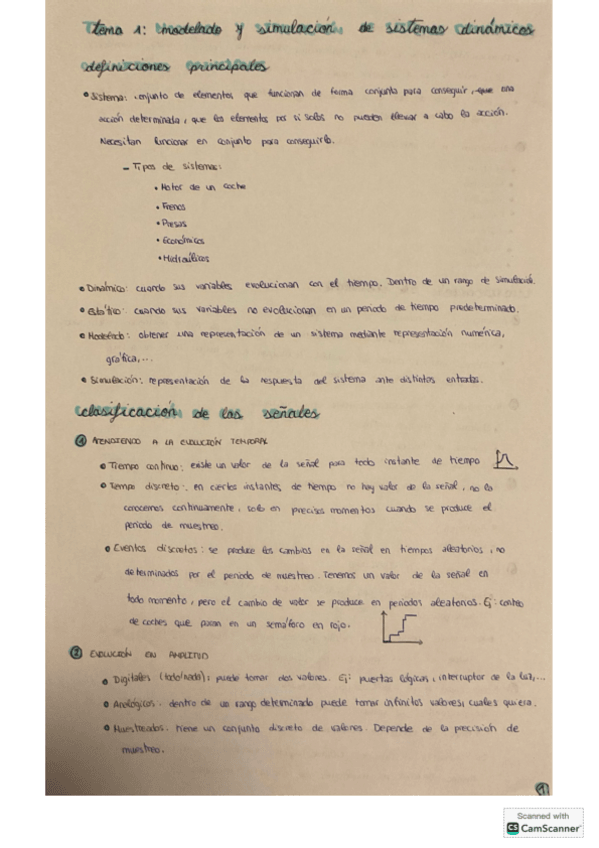 tema 1: modelado y simulación de sistemas dinámicos
definiciones principales
• Sistema: conjunto de elementos que funcionan de forma conjunta para conseguir, que una
acción determinada, que los elementos por si solos no pueden llevar a cabo la acción.
Necesitan funcionar en conjunto para conseguirlo.
- Tipos de sistemas:
• Motor de un coche
• Frenos
• Presas
• Económicos
• Hidraúlicos
• Dinámico: cuando sus variables evolucionan con el tiempo. Dentro de un rango de simulación.
• Estático: cuando sus variables no evolucionan en un periodo de tiempo predeterminado.
• Modelado: obtener una representación de un sistema mediante representación numérica,
gráfica,...
• Simulación: representación de la respuesta del sistema ante distintas entradas.
clasificación de las señales
① ATENDIENDO A LA EVOLUCIÓN TEMPORAL
• Tiempo continuo: existe un valor de la señal para todo instante de tiempo
• Tiempo discreto: en ciertos instantes de tiempo no hay valor de la señal, no la
conocemos continuamente, solo en precisos momentos cuando se produce el
periodo de muestreo.
• Eventos discretos: se produce los cambios en la señal en tiempos aleatorios, no
determinados por el periodo de muestreo. Tenemos un valor de la señal en
todo momento, pero el cambio de valor se produce en periodos aleatorios. Ej: conteo
de coches que pasan en un semáforo en rojo.
② EVOLUCIÓN EN AMPLITUD
• Digitales (todo/nada): puede tomar dos valores. Ej: puertas lógicas, interruptor de la luz,...
• Analógicos: dentro de un rango determinado puede tomar infinitos valores, cuales quiera.
• Muestreados: tiene un conjunto discreto de valores. Depende de la precisión de
muestreo.
1
Scanned with
CS CamScanner